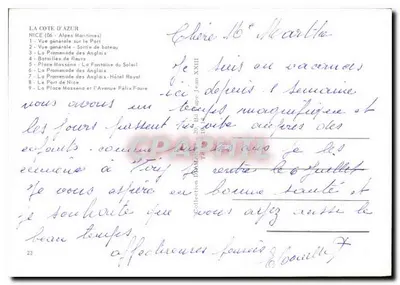 LA COTE D'AZUR
NICE (06 - Alpes Maritimes)
1 - Vue générale sur le Port
2 - Vue générale - Sortie de bateau
3 - La Promenade des Anglais
4 - Batailles de fleurs
5 - Place Masséna - La Fontaine du Soleil
6 - La Promenade des Anglais
7 - La Promenade des Anglais, Hôtel
8 - Le Port de Nice
9 - La Place Massena et l'Avenue Félix Faure
Chère Marthe
Je suis en vacances
ici depuis 1 semaine
nous avons un temps magnifique et
les jours passent très vite auprès des
enfants comme je les
emmène à je rentre le 6 juillet
Je vous espère en bonne santé et
je souhaite que vous ayez aussi le
beau temps
affectueuses pensées
22